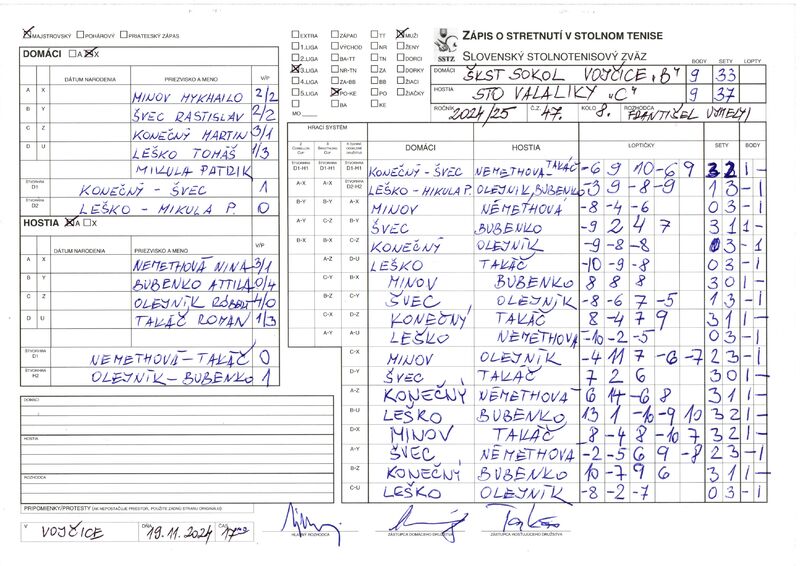 MAJSTROVSKÝ POHÁROVÝ PRIATEĽSKÝ ZÁPAS
DOMÁCI A X
DÁTUM NARODENIA PRIEZVISKO A MENO V/P
A X MINOV MYKHAILO 2/2
B Y ŠVEC RASTISLAV 2/2
C Z KONEČNÝ MARTIN 3/1
D U LEŠKO TOMÁŠ 1/3
MIKULA PATRIK
ŠTVORHRA D1 KONEČNÝ - ŠVEC 1
ŠTVORHRA D2 LEŠKO - MIKULA P. 0
HOSTIA A X
DÁTUM NARODENIA PRIEZVISKO A MENO V/P
A X NEMETHOVÁ NINA 3/1
B Y BUBENKO ATTILA 0/4
C Z OLEJNÍK RÓBERT 4/0
D U TAKÁČ ROMAN 1/3
ŠTVORHRA D1 NEMETHOVÁ - TAKÁČ 0
ŠTVORHRA H2 OLEJNÍK - BUBENKO 1
DOMÁCI
HOSTIA
ROZHODCA
PRIPOMIENKY/PROTESTY (AK NEPOSTAČUJE PRIESTOR, POUŽITE ZADNÚ STRANU ORIGINÁLU)
V VOJČICE DŇA 19.11.2024 ČAS 17:00
EXTRA ZÁPAD TT MUŽI
1.LIGA VÝCHOD NR ŽENY
2.LIGA BA-TT IN DORCI
3.LIGA NR-TN ZA DORKY
4.LIGA ZA-BB BB ŽIACI
5.LIGA PO-KE PO ŽIAČKY
MO BA KE
SSTZ
ZÁPIS O STRETNUTÍ V STOLNOM TENISE
SLOVENSKÝ STOLNOTENISOVÝ ZVÄZ
BODY SETY LOPTY
DOMÁCI ŠKST SOKOL VOJČICE „B" 9 33
HOSTIA STO VALALIKY „C" 9 37
ROČNÍK 2024/25 Č.Z. 47. KOLO 8. ROZHODCA
HRACÍ SYSTÉM
DOMÁCI HOSTIA LOPTIČKY SETY BODY
D1-H1 D1-H1 D1-H1 KONEČNÝ - ŠVEC NEMETHOVÁ - TAKÁČ -6 9 10 -6 9 3 2 1 -
A-X A-X D2-H2 LEŠKO - MIKULA P. OLEJNÍK, BUBENKO -3 9 -8 -9 1 3 - 1
B-Y B-Y A-X MINOV NÉMETHOVÁ -8 -4 -6 0 3 - 1
A-Y C-Z B-Y ŠVEC BUBENKO -9 2 4 7 3 1 1 -
B-X B-X C-Z KONEČNÝ OLEJNÍK -9 -8 -8 0 3 - 1
A-Z D-U LEŠKO TAKÁČ -10 -9 -8 0 3 - 1
C-Y B-X MINOV BUBENKO 8 8 8 3 0 1 -
B-Z C-Y ŠVEC OLEJNÍK -8 -6 7 -5 1 3 - 1
C-X D-Z KONEČNÝ TAKÁČ 8 -4 7 9 3 1 1 -
A-Y A-U LEŠKO NEMETHOVÁ -10 -2 -5 0 3 - 1
C-X MINOV OLEJNÍK -4 11 7 -6 -7 2 3 - 1
D-Y ŠVEC TAKÁČ 7 2 6 3 0 1 -
A-Z KONEČNÝ NÉMETHOVÁ 6 14 -6 8 3 1 1 -
B-U LEŠKO BUBENKO 13 1 -10 -9 10 3 2 1 -
D-X MINOV TAKÁČ 8 -4 8 -10 7 3 2 1 -
A-Y ŠVEC NÉMETHOVÁ -2 -5 6 9 -8 2 3 - 1
B-Z KONEČNÝ BUBENKO 10 -7 9 6 3 1 1 -
C-U LEŠKO OLEJNÍK -8 -2 -7 0 3 - 1
HLAVNÝ ROZHODCA ZÁSTUPCA DOMÁCEHO DRUŽSTVA ZÁSTUPCA HOSŤUJÚCEHO DRUŽSTVA